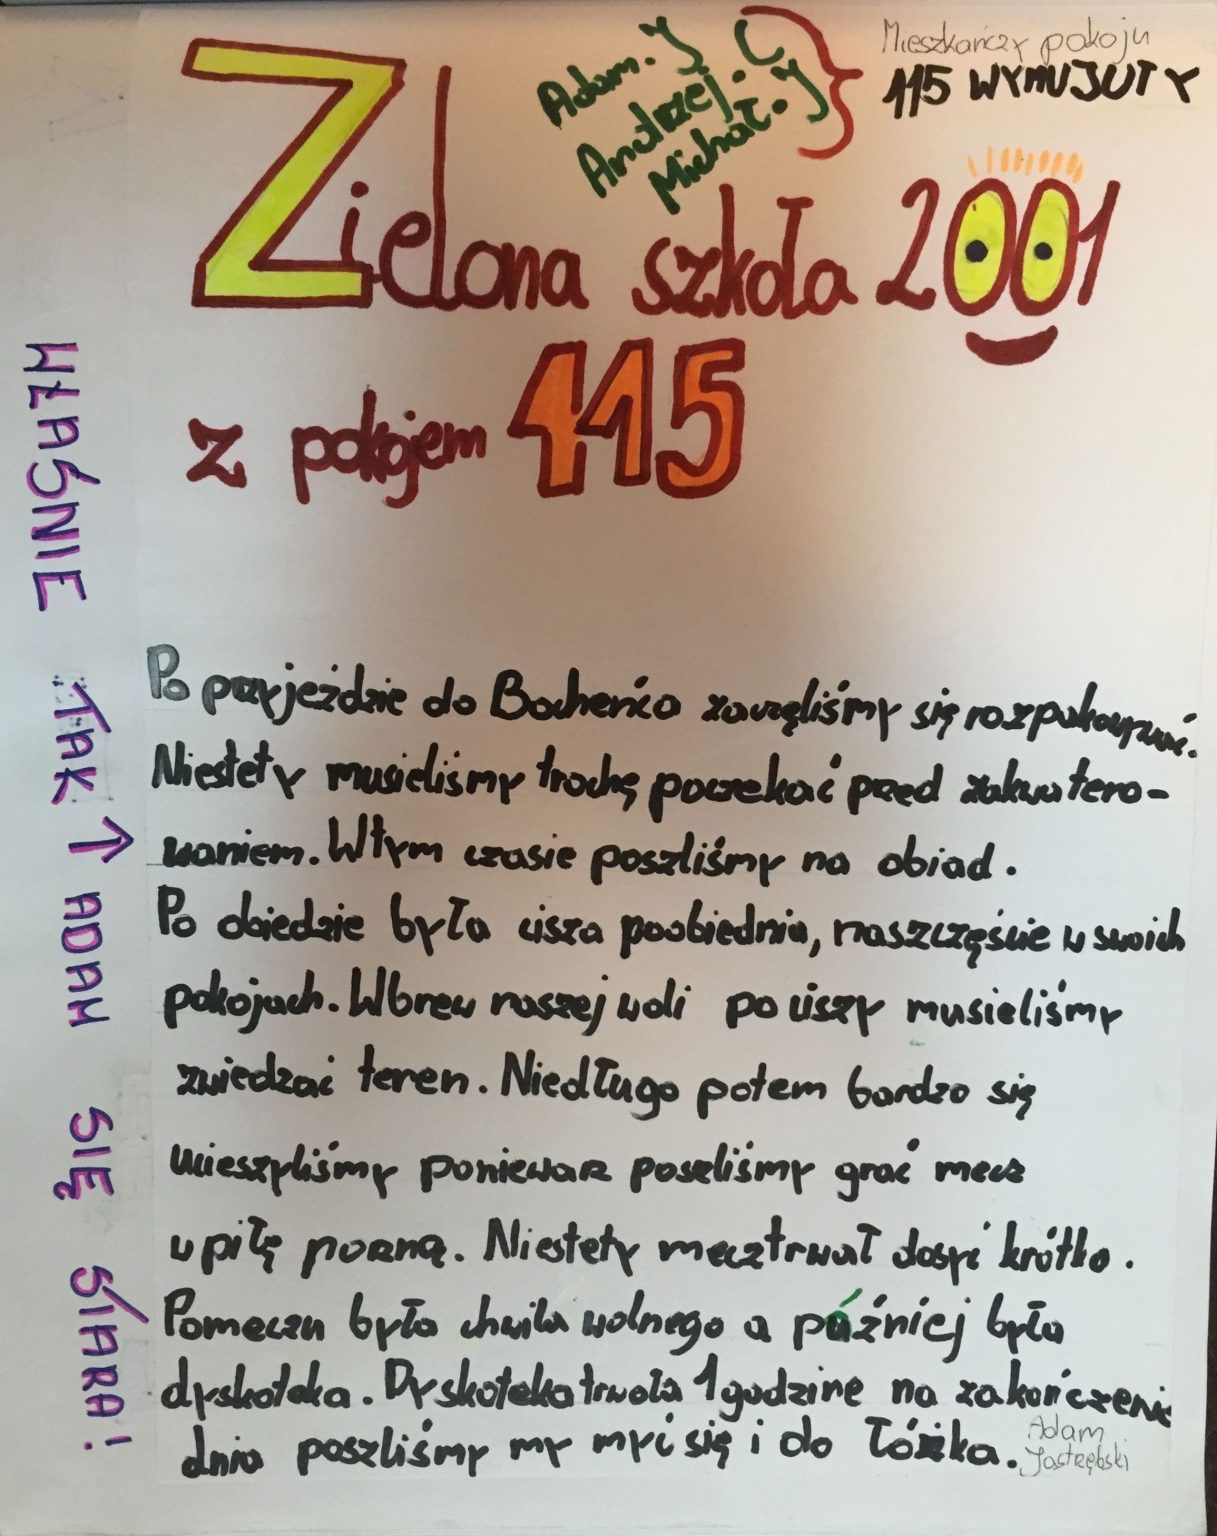 Adam. J
Andrzej. C
Michał. J
Mieszkańczy pokoju
115 WYMUJUTY
Zielona szkoła 2001
z pokojem 115
WŁAŚNIE TAK ↑ ADAM SIĘ STARA!
Po przyjeździe do Bocheńca zaczęliśmy się rozpakowywać.
Niestety musieliśmy trochę poczekać przed zakwatero-
waniem. Wtym czasie poszliśmy na obiad.
Po obiedzie była cisza poobiednia, naszczęście w swoich
pokojach. Wbrew naszej woli po ciszy musieliśmy
zwiedzać teren. Niedługo potem bardzo się
ucieszyliśmy poniewarz poszliśmy grać mecz
w piłę norzną. Niestety mecz trwał dosyć krótko.
Pomeczu była chwila wolnego a później była
dyskoteka. Dyskoteka trwała 1 godzine na zakończenie
dnia poszliśmy my myć się i do łóżka.
Adam
Jastrzębski